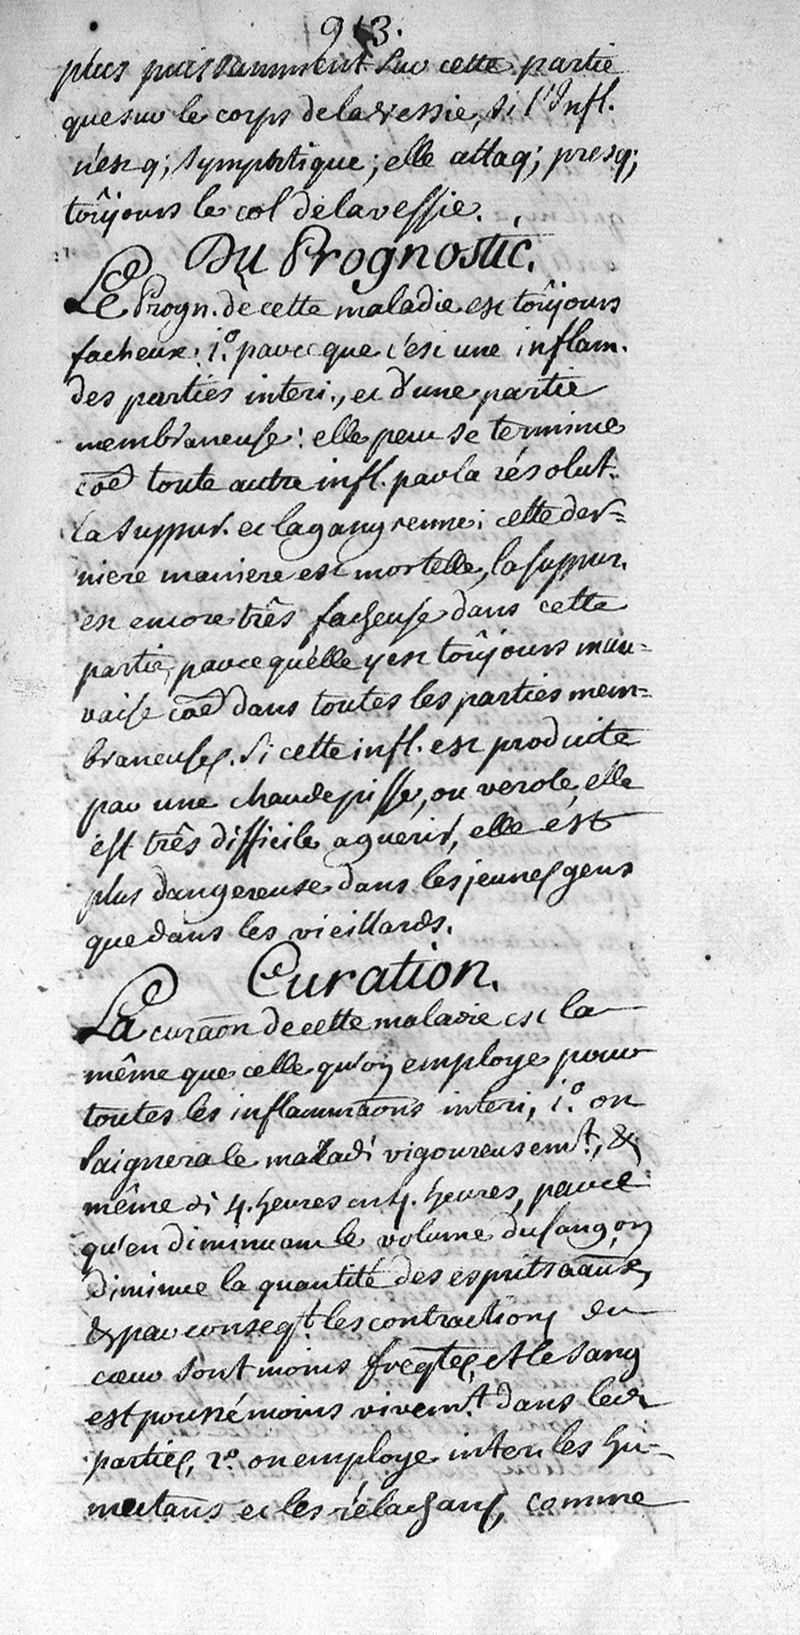 913.
plus puissamment sur cette partie
que sur le corps de la vessie, si l'Infl.
n'est q; sympatique; elle attaq; presq;
toûjours le col de la vessie.
Du Prognostic.
Le Progn. de cette maladie est toûjours
facheux: 1.° parce que c'est une inflam.
des parties interi., et d'une partie
membraneuse: elle peut se termine
coe toute autre infl. par la résolut.
la suppur. et la gangrenne; cette der=
niere maniere est mortelle, la suppur.
est encore três facheuse dans cette
partie, parce qu'elle y est toûjours mau=
vaise coe dans toutes les parties mem=
braneuses. Si cette infl. est produite
par une chaudepisse, ou verole, elle
est três difficile a guerir, elle est
plus dangereuse dans les jeunes gens
que dans les vieillards.
Curation.
La curaōn de cette maladie est la
même que celle qu'on employe pour
toutes les inflammaōns interi, 1.° on
saignera le malad vigoureusem.t, &
même di 4. heures en 4. heures, parce
qu'en diminuant le volume du sang, on
diminue la quantité des esprits aāux,
& par conseq.t les contractions du
cœur sont moins freqtes, et le sang
est poussé moins vivem.t dans les
parties, 2.° on employe interi les hu-
mectans et les rélachans, comme